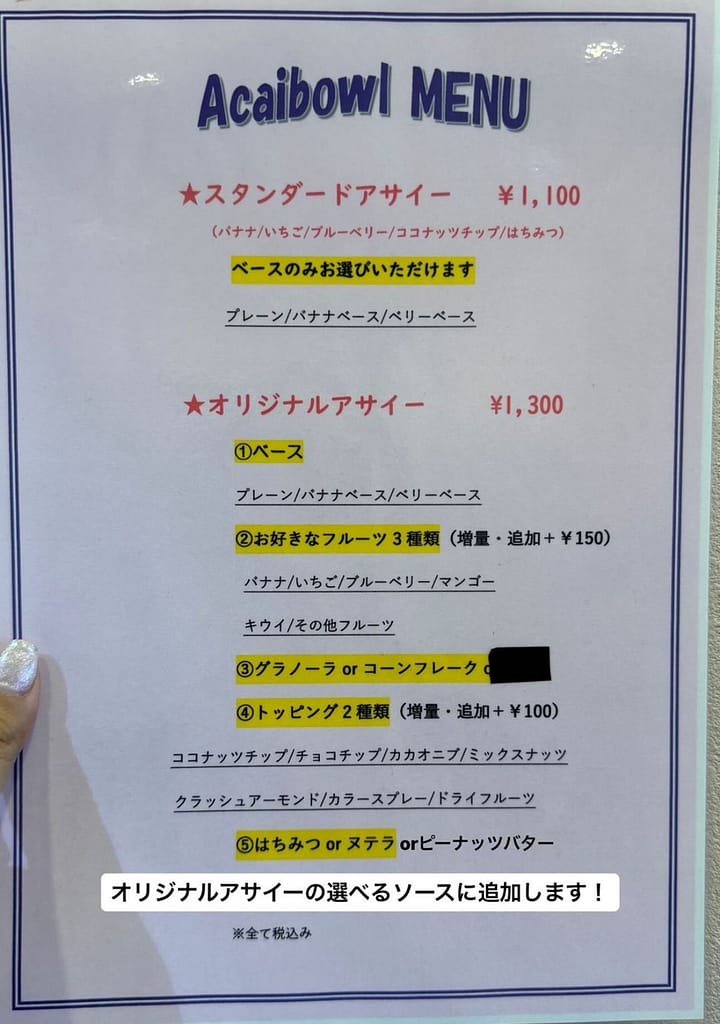 Acaibowl MENU
★スタンダードアサイー ￥1,100
（バナナ/いちご/ブルーベリー/ココナッツチップ/はちみつ）
ベースのみお選びいただけます
プレーン/バナナベース/ベリーベース
★オリジナルアサイー ¥1,300
①ベース
プレーン/バナナベース/ベリーベース
②お好きなフルーツ３種類（増量・追加＋￥150）
バナナ/いちご/ブルーベリー/マンゴー
キウイ/その他フルーツ
③グラノーラ or コーンフレーク
④トッピング２種類（増量・追加＋￥100）
ココナッツチップ/チョコチップ/カカオニブ/ミックスナッツ
クラッシュアーモンド/カラースプレー/ドライフルーツ
⑤はちみつ or ヌテラ orピーナッツバター
オリジナルアサイーの選べるソースに追加します！
※全て税込み